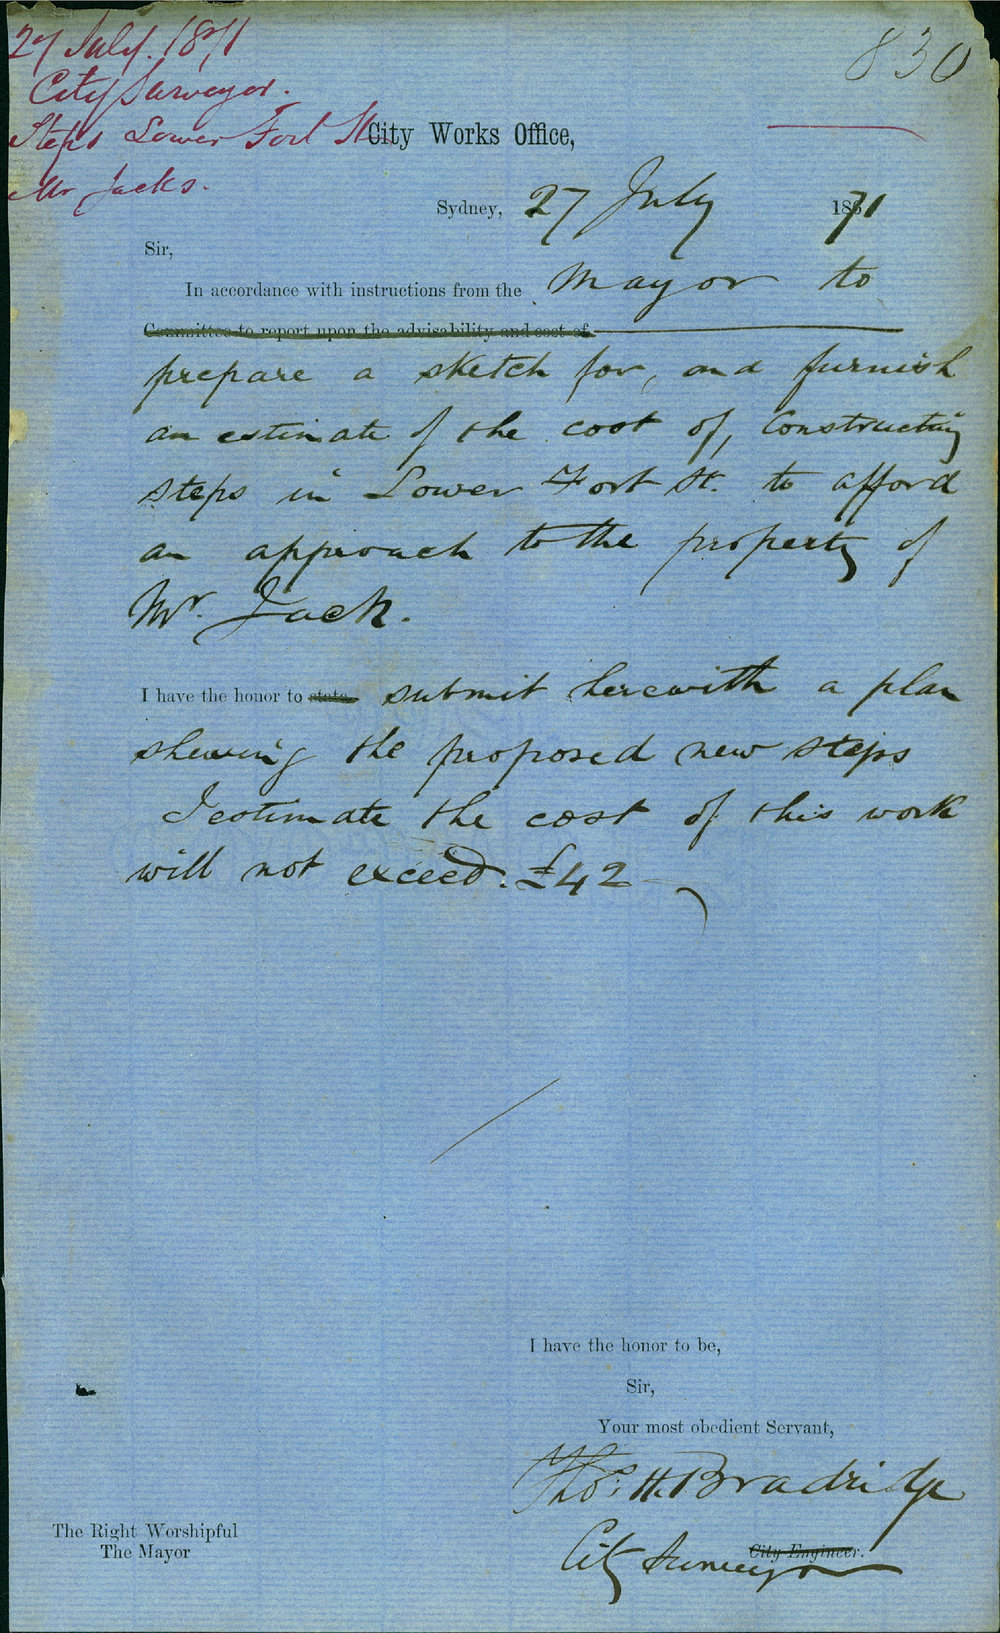 27 July. 1871
830
City Surveyor.
Steps Lower Fort St
City Works Office,
Mr Jacks.
Sydney, 27 July 1871
Sir,
In accordance with instructions from the Mayor to
Committee to report upon the advisability and cost of
prepare a sketch for, and furnish
an estimate of the cost of, Constructing
steps in Lower Fort St. to afford
an approach to the property of
Mr. Jack.
I have the honor to state submit herewith a plan
shewing the proposed new steps
I estimate the cost of this work
will not exceed. £42
I have the honor to be,
Sir,
Your most obedient Servant,
Thos. H. Bradridge
The Right Worshipful
The Mayor
City Engineer.
City Surveyor